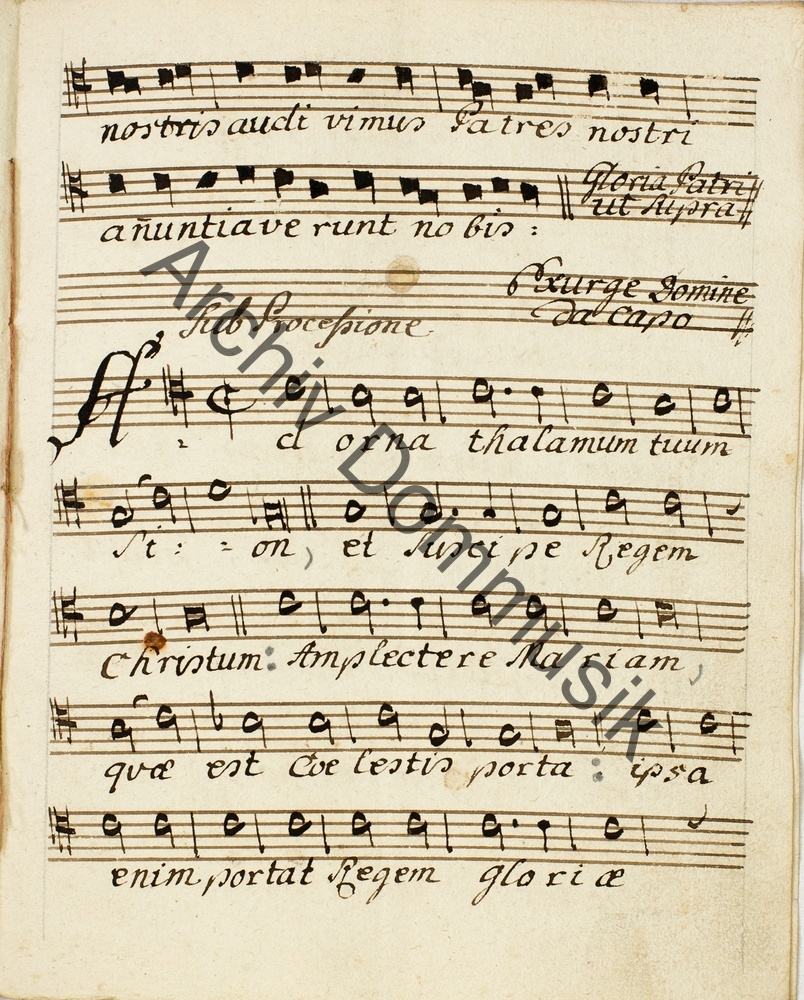 nostris audi vimus Patres nostri
Gloria Patri
ut supra
añuntiave runt no bis :
Exurge Domine
da capo
Sub Processione.
A d orna thalamum tuum
Si : = on, et susci pe Regem
Christum : Amplectere Ma riam,
quæ est Cœ lestis porta : ipsa
enim portat Regem glo ri æ
Archiv Dommusik